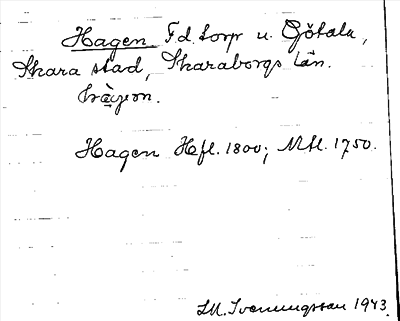 Hagen. Fd. torp u. Götala,
Skara stad, Skaraborgs län.
Hagen Hfl. 1800; Mtl. 1750.
I.M. Svenungsson 1943.